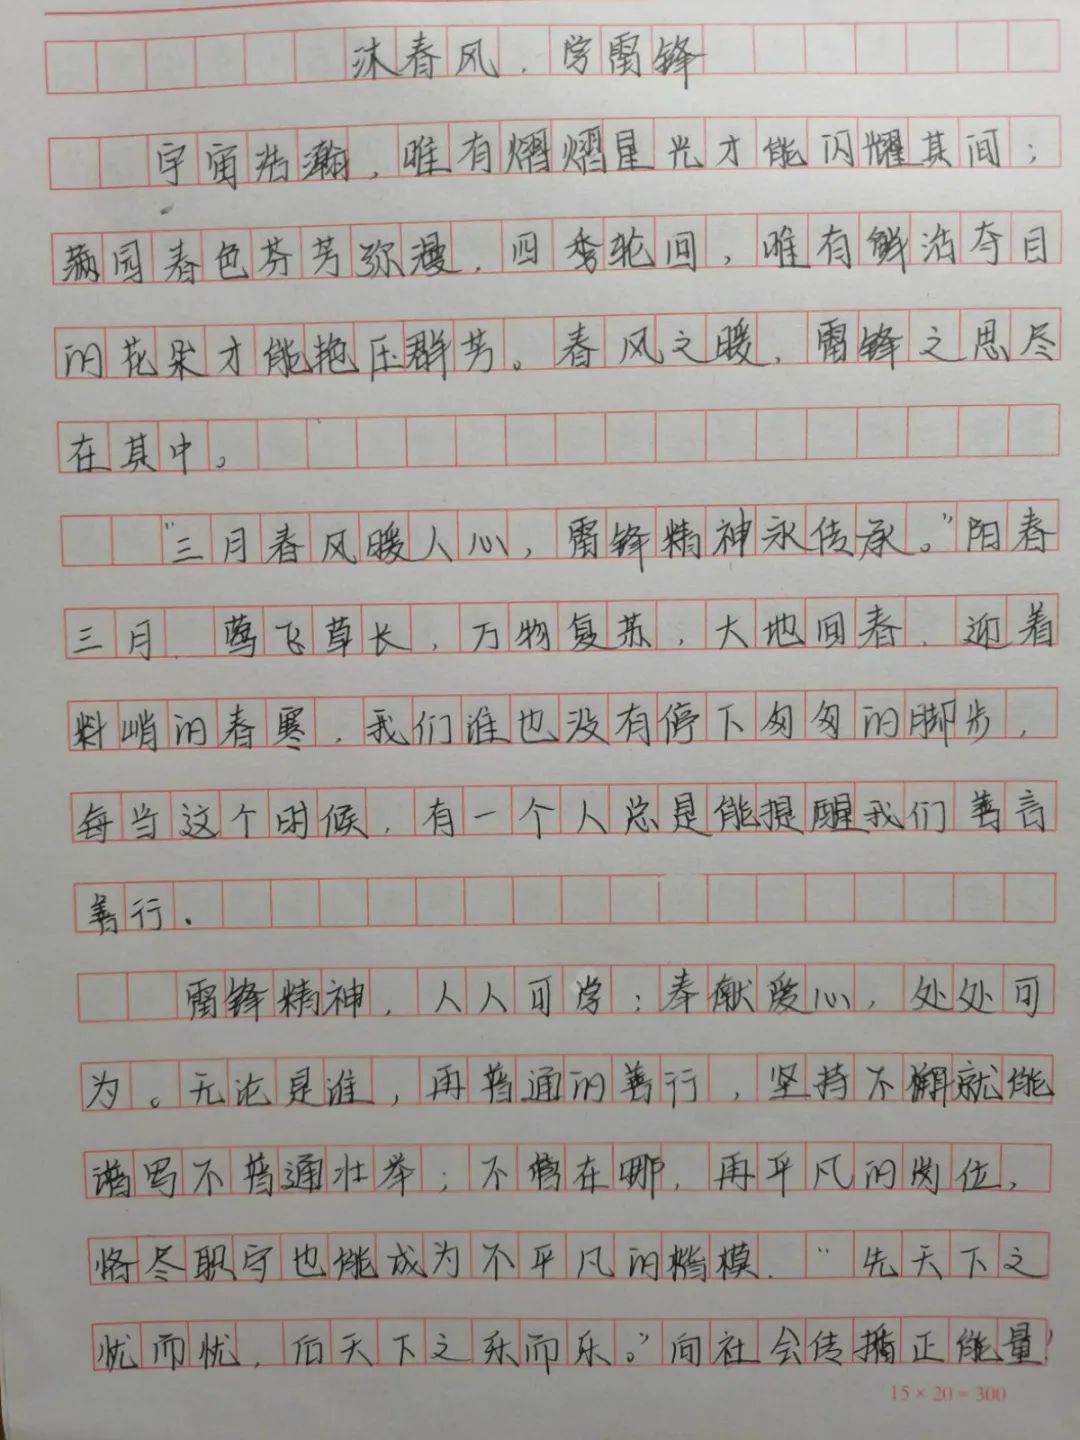 沐春风，学雷锋
宇宙浩瀚，唯有熠熠星光才能闪耀其间；
满园春色芬芳弥漫，四季轮回，唯有鲜活夺目
的花朵才能艳压群芳。春风之暖，雷锋之思尽
在其中。
“三月春风暖人心，雷锋精神永传承。”阳春
三月，莺飞草长，万物复苏，大地回春，迎着
料峭的春寒，我们谁也没有停下匆匆的脚步，
每当这个时候，有一个人总是能提醒我们善言
善行。
雷锋精神，人人可学；奉献爱心，处处可
为。无论是谁，再普通的善行，坚持不懈就能
谱写不普通壮举；不管在哪，再平凡的岗位，
恪尽职守也能成为不平凡的楷模。“先天下之
忧而忧，后天下之乐而乐。”向社会传播正能量！
15×20=300